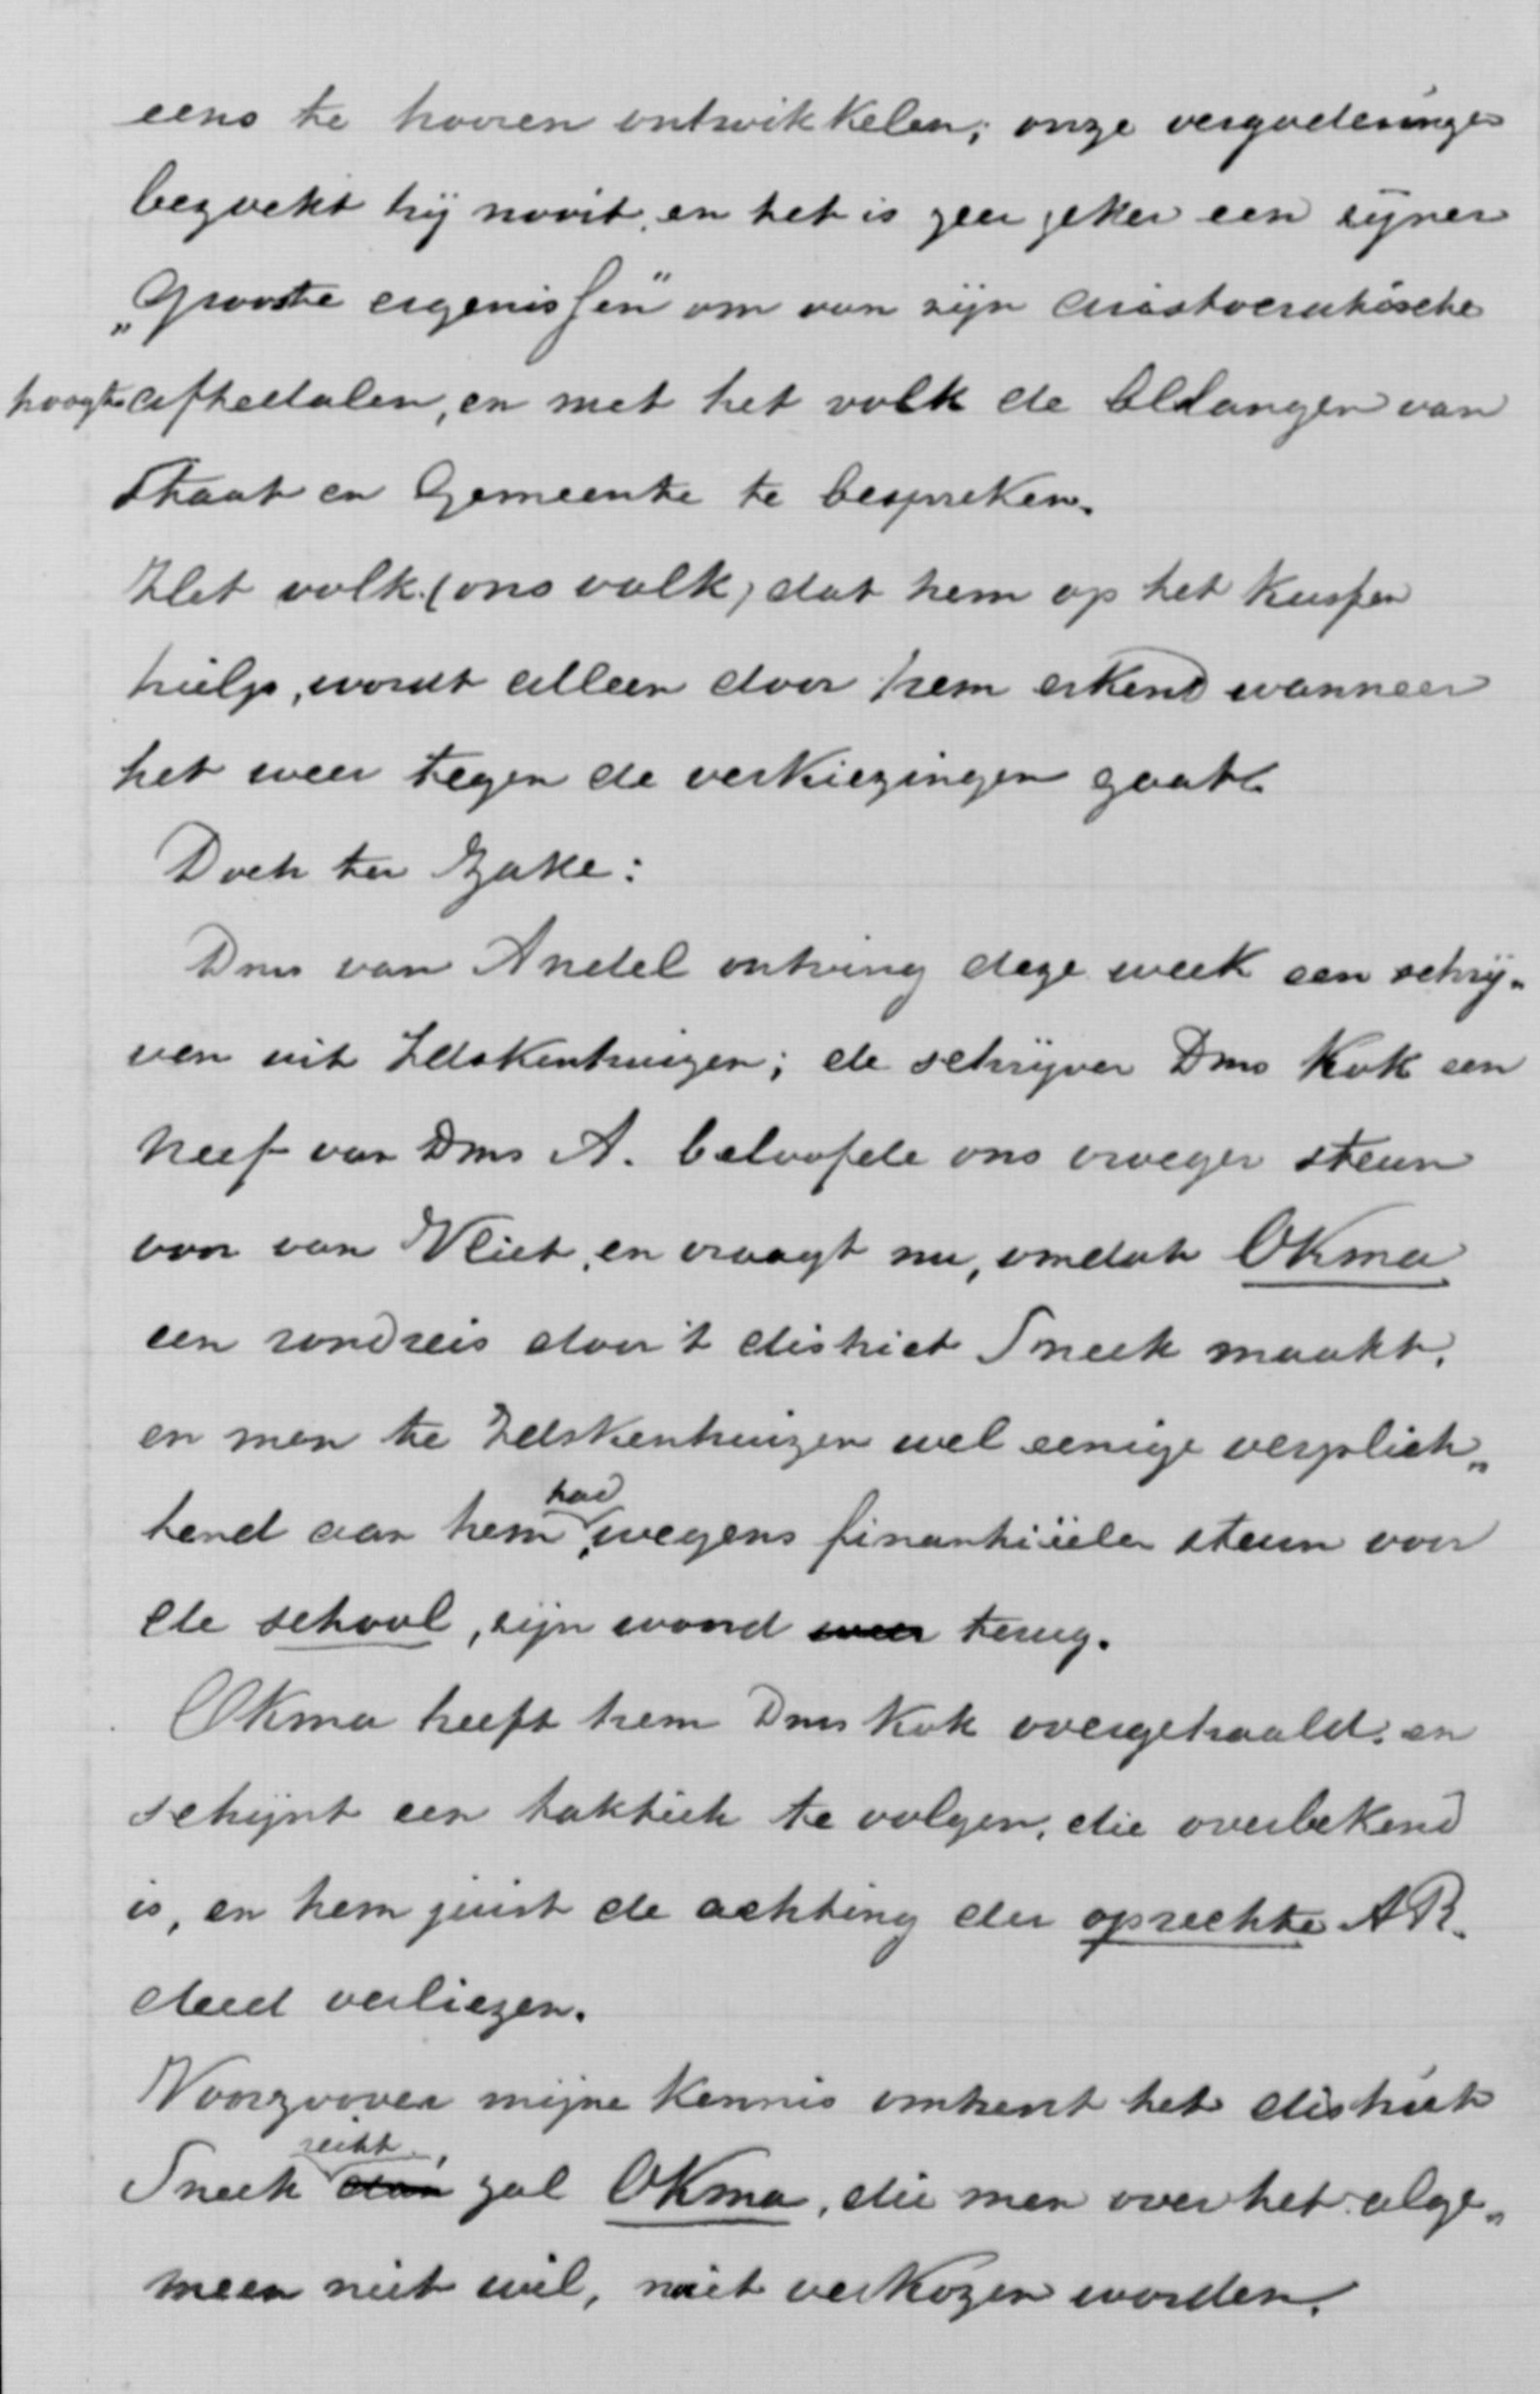 eens te hooren ontwikkelen; onze vergaderingen
bezoekt hij nooit, en het is zeer zeker een zijner
„Grootste ergenissen" om van zijn aristocratische
hoogte af te dalen, en met het volk de belangen van
Staat en Gemeente te bespreken.
Het volk (ons volk) dat hem op het kussen
hielp, wordt alleen door hem erkend wanneer
het weer tegen de verkiezingen gaat.
Doch ter Zake:
Dms van Andel ontving deze week een schrij„
ven uit Idskenhuizen; de schrijver Dms Kok een
neef van Dms A. beloofde ons vroeger steun
voor van Vliet, en vraagt nu, omdat Okma
een rondreis door 't district Sneek maakt,
en men te Idskenhuizen wel eenige verplich„
tend aan hem had, wegens finantiëelen steun voor
de school, zijn woord weer terug.
Okma heeft hem Dms Kok overgehaald, en
schijnt een taktiek te volgen, die overbekend
is, en hem juist de achting der oprechte AR.
deed verliezen.
Voorzoover mijne kennis omtrent het district
Sneek reikt, zal Okma, die men over het alge„
meen niet wil, niet verkozen worden.